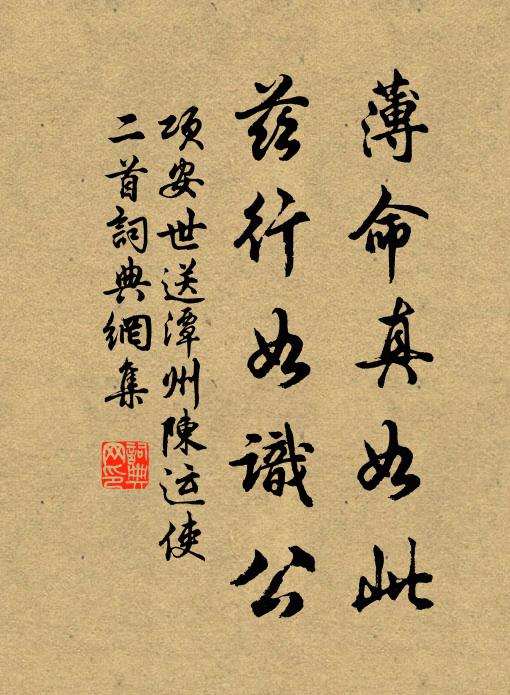 薄命真如此
茲行如識公
項安世送潭州陳運使
二首詞典網集
詞典网印